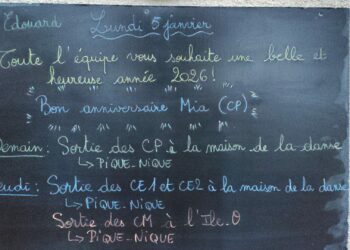 Edouard
Lundi 5 janvier
Toute l'équipe vous souhaite une belle et
heureuse année 2026!
Bon anniversaire Mia (CP)
Demain : Sortie des CP à la maison de la danse
↳ PIQUE-NIQUE
Jeudi : Sortie des CE1 et CE2 à la maison de la danse
↳ PIQUE-NIQUE
Sortie des CM à l'Ile.O
↳ PIQUE-NIQUE